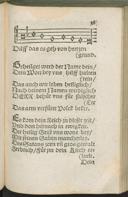 Hilff das es geh von hertzen
grund.
Geheiliget werd der Name dein /
Dein Wort bey uns hilff halten
rein /
Das auch wir leben heiliglich /
Nach deinem Namen wirdiglich
HERR behüt uns für falscher
Lehr
Das arm verfüret Volck bekehr.
Es kom dein Reich zu dieser zeit /
Und dort hernach in ewigkeit.
Der heilig Geist uns wone bey /
Mit seinen gaben mancherley.
Des Satans zorn und gros gewalt
Zerbrich / Für im dein Kirch erhalt.
Dein